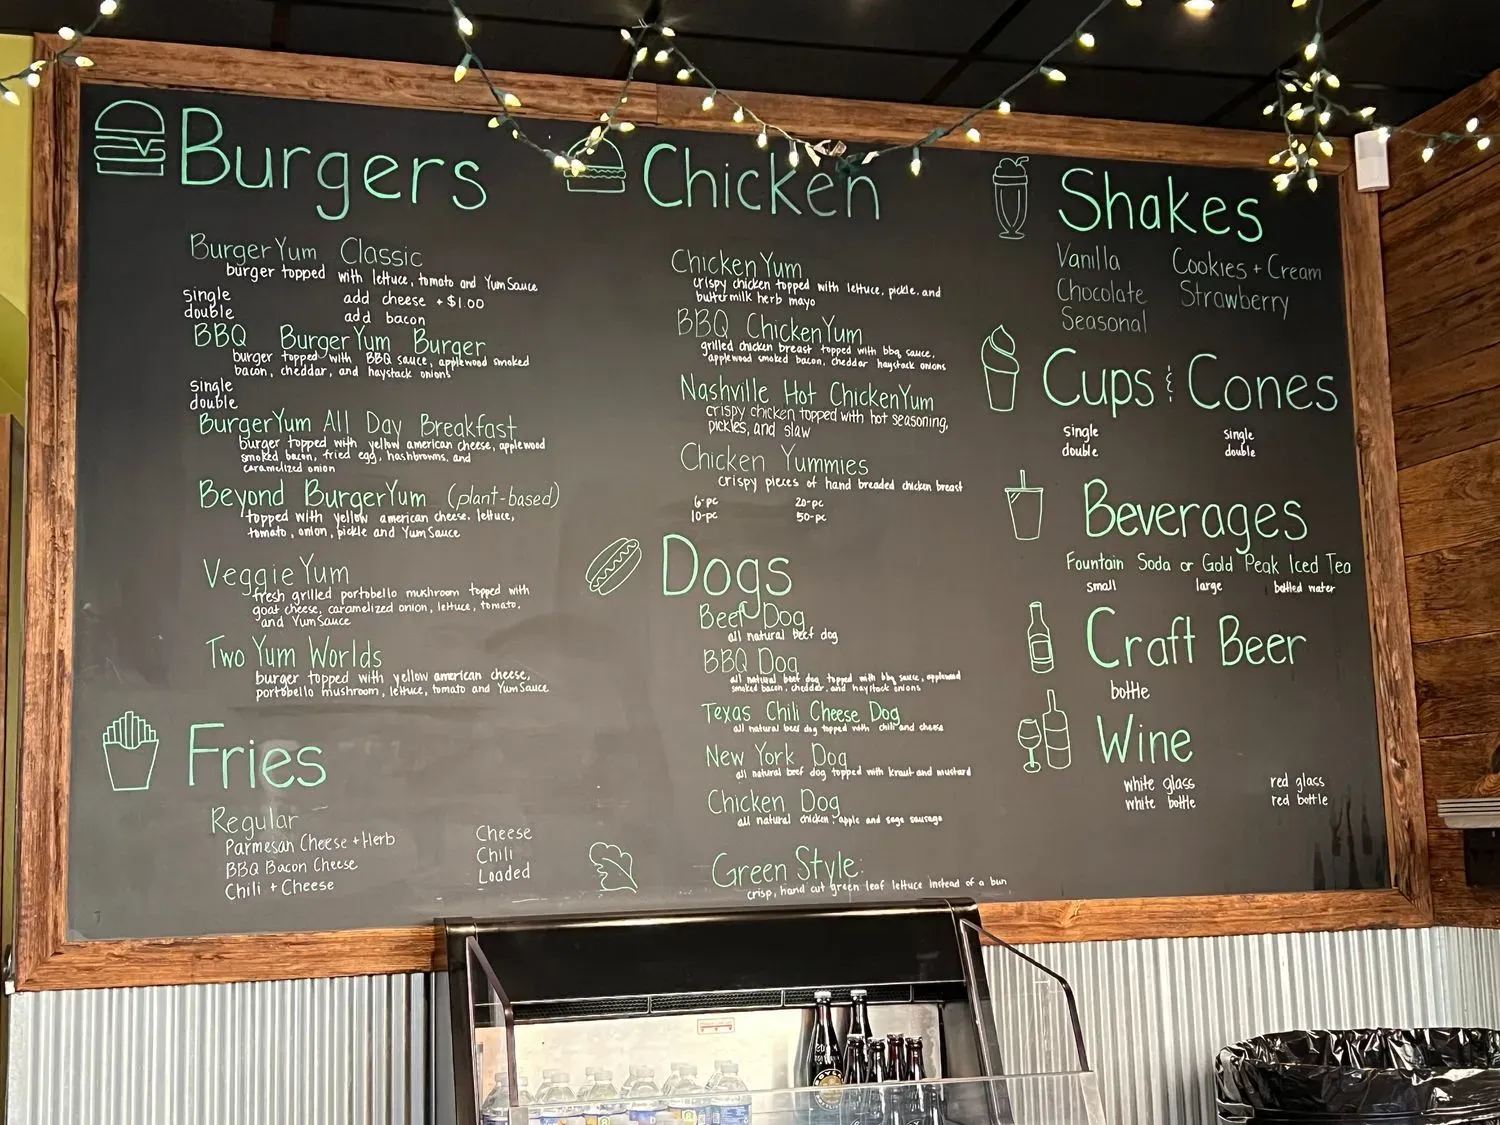 Burgers
BurgerYum Classic
burger topped with lettuce, tomato and YumSauce
single add cheese + $1.00
double add bacon
BBQ BurgerYum Burger
burger topped with BBQ sauce, applewood smoked
bacon, cheddar, and haystack onions
single
double
BurgerYum All Day Breakfast
burger topped with yellow american cheese, applewood
smoked bacon, fried egg, hashbrowns, and
caramelized onion
Beyond BurgerYum (plant-based)
topped with yellow american cheese, lettuce,
tomato, onion, pickle and YumSauce
VeggieYum
fresh grilled portobello mushroom topped with
goat cheese, caramelized onion, lettuce, tomato,
and YumSauce
Two Yum Worlds
burger topped with yellow american cheese,
portobello mushroom, lettuce, tomato and YumSauce
Fries
Regular
Parmesan Cheese + Herb
BBQ Bacon Cheese
Chili + Cheese
Cheese
Chili
Loaded
Chicken
ChickenYum
crispy chicken topped with lettuce, pickle, and
buttermilk herb mayo
BBQ ChickenYum
grilled chicken breast topped with bbq sauce,
applewood smoked bacon, cheddar haystack onions
Nashville Hot ChickenYum
crispy chicken topped with hot seasoning,
pickles, and slaw
Chicken Yummies
crispy pieces of hand breaded chicken breast
6-pc 20-pc
10-pc 50-pc
Dogs
Beef Dog
all natural beef dog
BBQ Dog
all natural beef dog topped with bbq sauce, applewood
smoked bacon, cheddar, and haystack onions
Texas Chili Cheese Dog
all natural beef dog topped with chili and cheese
New York Dog
all natural beef dog topped with kraut and mustard
Chicken Dog
all natural chicken, apple and sage sausage
Green Style:
crisp, hand cut green leaf lettuce instead of a bun
Shakes
Vanilla Cookies + Cream
Chocolate Strawberry
Seasonal
Cups & Cones
single single
double double
Beverages
Fountain Soda or Gold Peak Iced Tea
small large bottled water
Craft Beer
bottle
Wine
white glass red glass
white bottle red bottle